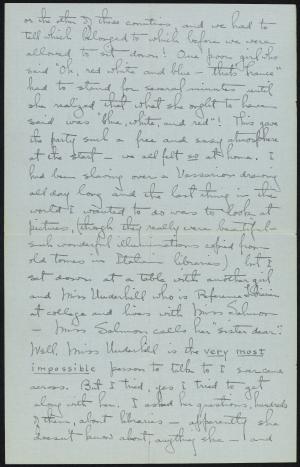 or the other of those countries, and we had to
tell which belonged to which before we were
allowed to sit down! One poor girl who
said "Oh, red white and blue — that's France"
had to stand for several minutes until
she realized that what she ought to have
said was "blue, white, and red"! This gave
the party such a free and easy atmosphere
at the start — we all felt so at home. I
had been slaving over a Vassarion drawing
all day long and the last thing in the
world I wanted to do was to look at
pictures, (though they really were beautiful —
such wonderful illuminations copied from
old tomes in Italian libraries) but I
sat down at a table with another girl
and Miss Underhill who is Reference Librarian
at college and lives with Miss Salmon
— Miss Salmon calls her "sister dear".
Well, Miss Underhill is the very most
impossible person to talk to I ever came
across. But I tried, yes I tried to get
along with her. I asked her questions, hundreds
of them, about libraries — apparently she
doesn't know about anything else — and